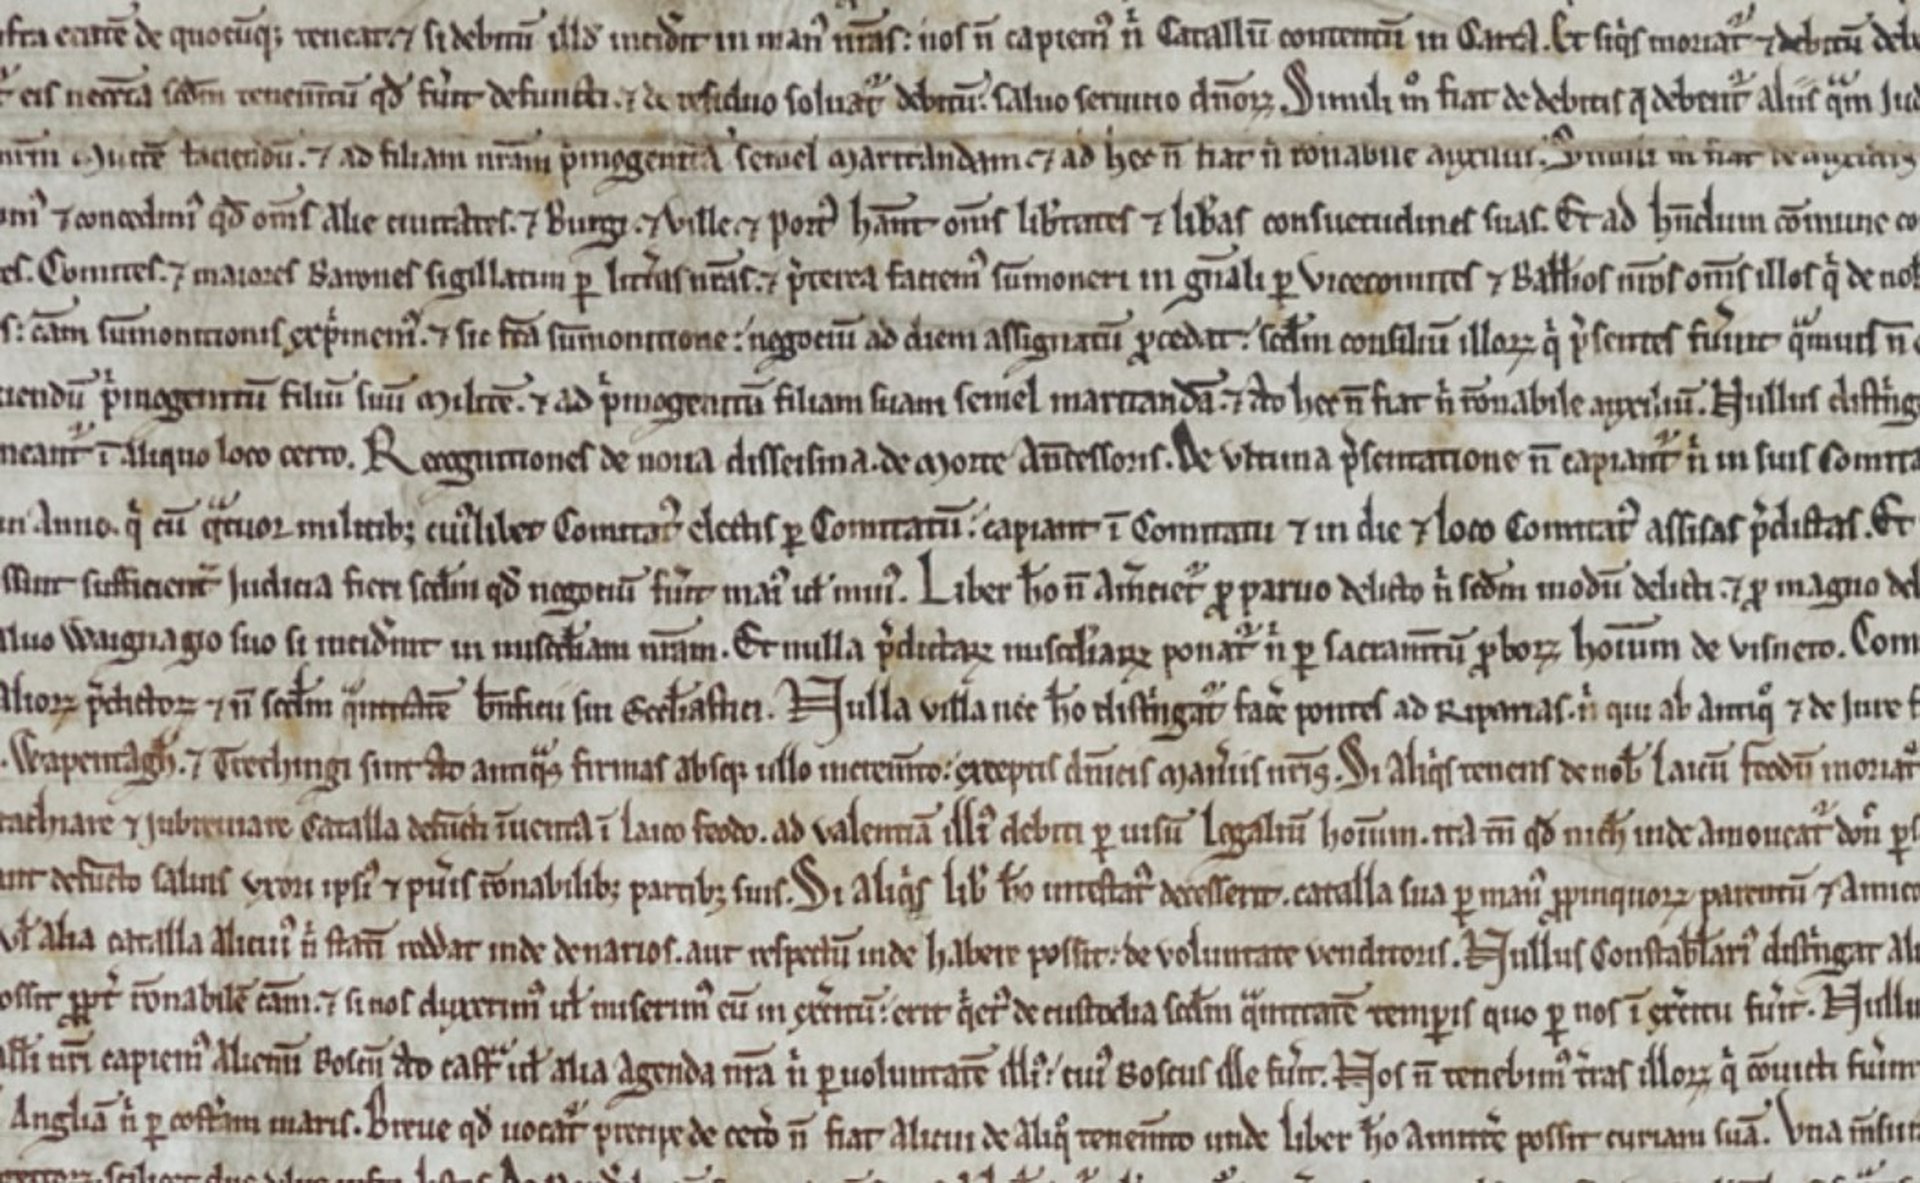 infra etatē de quocūq; teneat. ⁊ si debitū illd inciderit in man᾿ nr̄as: nos n̄ capiem᾿ nͥ Catallū contentū in Carta. Et siqͥs moriat᾿ ⁊ debitū deb
eis necc̄ria scdm̄ tenem̄tū qd̄ fu᾿it defuncti. ⁊ de residuo soluat᾿ debitū. saluo seruitio dn̄oꝝ. Simili mͦ fiat de debitis q̄ debent᾿ aliis qͣm Jud
Militē faciendū. ⁊ ad filiam nr̄am pͥmogenitā semel Maritandam. ⁊ ad hec n̄ fiat nͥ rōnabile auxiliū. Simili m̄ fiat de auxiliis
⁊ concedim᾿ qd̄ om̄s alie ciuitates. ⁊ Burgi. ⁊ Ville. ⁊ Port᾿ hāant om̄s lib᾿tates ⁊ lib᾿as consuetudines suas. Et ad hn̄dum cōmune co
Comites. ⁊ maiores Barones sigillatim ꝑ litt᾿as nr̄as. ⁊ p᾿terea faciem᾿ sūmoneri in gn̄ali ꝑ Vicecomites ⁊ Ball᾿ios nr̄os om̄s illos qͥ de nob
cām sūmonitionis exp̄mem᾿. ⁊ sic fc̄a sūmonitione: negociū ad diem assignatū ꝓcedat: scdm̄ consiliū illoꝝ qͥ p᾿sentes fu᾿int qͣmuis n̄
pͥmogenitū filiū suū Militē. ⁊ ad pͥmogenitū filiam suam semel maritandā. ⁊ ad hec n̄ fiat nͥ rōnabile auxiliū. Nullus distͥng
teneant᾿ ī aliquo loco certo. Recognitiones de noua disseisina. de Morte Ān̄tessoris. De vltima p᾿sentatione n̄ capiant᾿ nͥ in suis Comita
in Anno. qͥ cū qͣtuor militib; cui᾿libet Comitat᾿ electis ꝑ Comitatū: capiant ī Comitatu ⁊ in die ⁊ loco Comitat᾿ assisas p᾿dictas. Et
sufficient᾿ Judicia fieri scdm̄ qd̄ negociū fu᾿it mai᾿ ul᾿ min᾿. Liber hō n̄ Am᾿ciet᾿ ꝓ paruo delicto nͥ scdm̄ modū delicti. ⁊ ꝓ magno del
Waignagio suo si incid᾿int in misc᾿diam nr̄am. Et nulla p᾿dictaꝝ misc᾿diaꝝ ponat᾿ nͥ ꝑ sacram̄tū ꝓboꝝ hoīum de visneto. Com
alioꝝ p᾿dictoꝝ ⁊ n̄ scdm̄ qͣntitatē bn̄ficii sui Eccl᾿iastici. Nulla villa nec hō distͥngat᾿ fac᾿e pontes ad Riparias. nͥ qui ab antiqͦ ⁊ de Jure
Wapentagh. ⁊ Trethingi sint ad antiqͣs firmas absq; ullo increm̄to: exceptis dn̄icis Man᾿iis nr̄is. Si Aliqͥs tenens de nob᾿ laicū feodū moriat᾿
attachiare ⁊ Jnbreuiare Catalla defūcti īuenta ī laico feodo. ad valentiā illi᾿ debiti ꝑ uisū legaliū hoīum. ita tn̄ qd̄ nich᾿ inde amoueat᾿ don᾿ ꝑs
defūcto saluis vxori ipsi᾿ ⁊ pu᾿is rōnabilib; partib; suis. Si Aliqͥs lib᾿ hō intestat᾿ decesserit. catalla sua ꝑ man᾿ ꝓpinquoꝝ parentū ⁊ Amico
ul᾿ alia catalla alicui᾿ nͥ statī reddat inde denarios. aut respectū inde habere possit: de voluntate venditoris. Nullus Constabl᾿ari᾿ distͥngat
possit ꝓpt᾿ rōnabilē cām. ⁊ si nos duxerim᾿ ul᾿ miserim᾿ eū in ex᾿citū: erit qͥet᾿ de custodia scdm̄ qͣntitatē temꝑis quo ꝑ nos ī ex᾿citu fu᾿it. Nullu
nr̄i capiem᾿ Alienū Boscū ad castͣ ul᾿ alia Agenda nr̄a nͥ ꝑ uoluntatē illi᾿: cui᾿ Boscus ille fu᾿it. Nos n̄ tenebim᾿ t᾿ras illoꝝ qͥ cōuicti fu᾿int
Angliā nͥ ꝑ cost᾿am maris. Breue qd̄ uocat᾿ precipe de cet᾿o n̄ fiat Alicui de aliqͦ tenem̄to unde liber hō Amitt᾿e possit curiam suā. Vna m̄sur